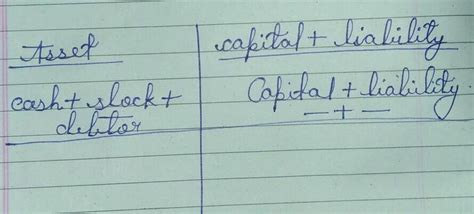 Asset
capital + liability
cash + stock +
debtor
Capital + liability.
— + —